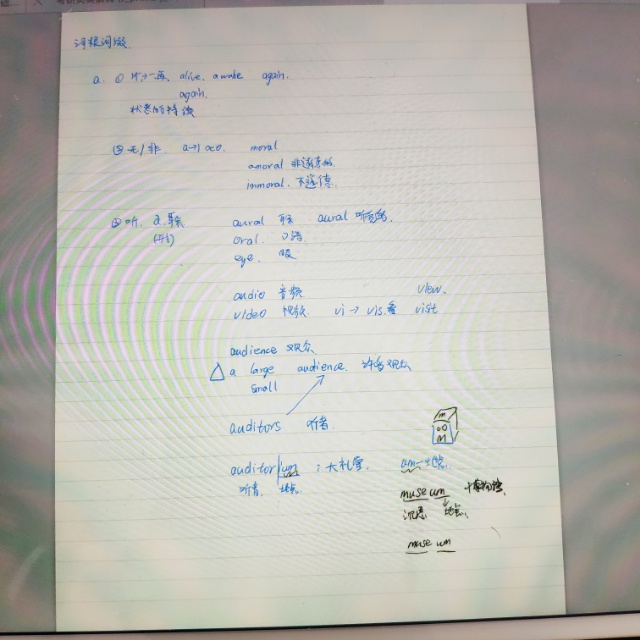 词根词缀
a. ① 再, alive, awake again.
again.
状态的持续
② 无/非 a→ moral
amoral 非道德的
immoral. 不道德
③ 听. a. 耳朵 aural 耳 aural 听觉的.
oral. 口语
eye. 眼
audio 音频 view.
video 视频 vi → vis. 看 visit
audience 观众
△ a large audience. 许多观众
small
auditors 听者
auditor|um : 大礼堂. um
听者. 地点
museum 博物馆.
沉思
muse um